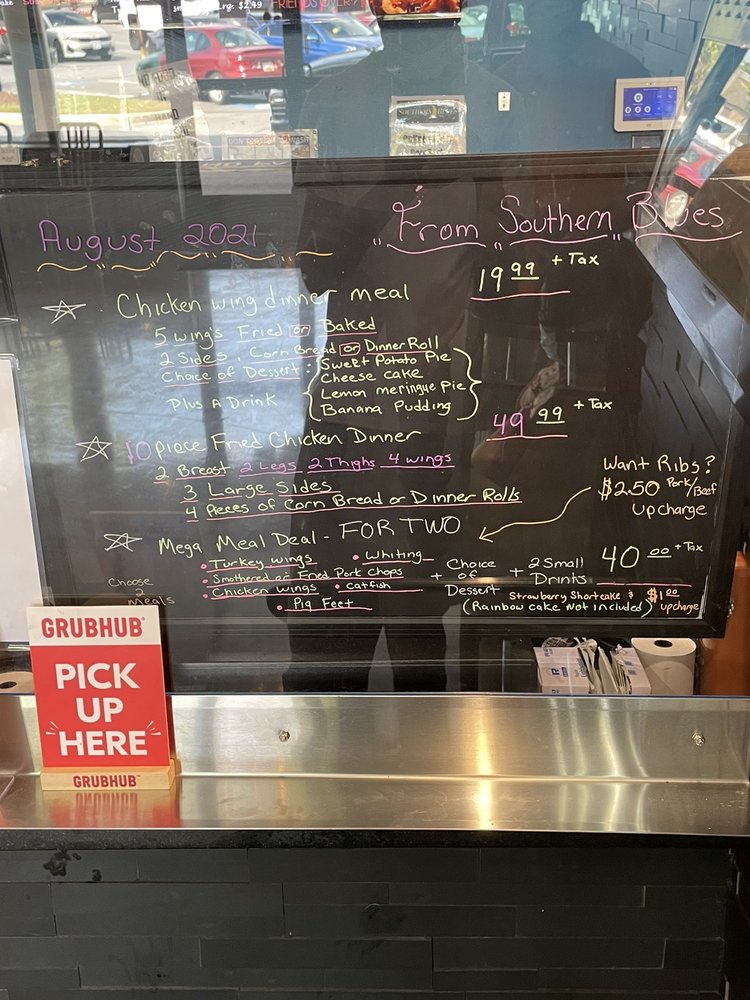 Lrg: $2.49
FRIENDS
SOUTHERN
August 2021
"From" "Southern" Blues
19 99 + Tax
Chicken wing dinner meal
5 wing's Fried or Baked
2 Sides, Corn Bread or Dinner Roll
Choice of Dessert:
Sweet Potato Pie
Cheese cake
Lemon meringue Pie
Banana Pudding
Plus A Drink
49 99 + Tax
10 piece Fried Chicken Dinner
2 Breast 2 Legs 2 Thighs 4 wings
3 Large Sides
4 Pieces of Corn Bread or Dinner Rolls
Want Ribs?
$2.50 Pork/Beef
Upcharge
Mega Meal Deal - FOR TWO
40 00 + Tax
Choose
2
Meals
• Turkey wings • Whiting
• Smothered or Fried Pork Chops
• Chicken wings • Catfish
• Pig Feet
+ Choice of Dessert + 2 Small Drinks
Strawberry Shortcake $ $1.00
(Rainbow cake Not included) upcharge
GRUBHUB
PICK
UP
HERE
GRUBHUB